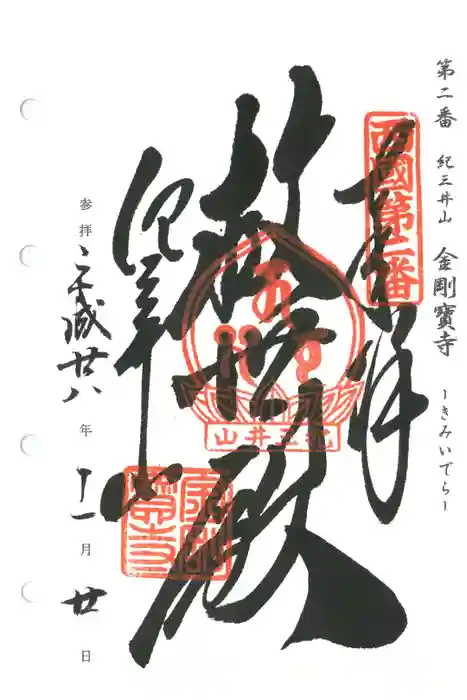 第二番 紀三井山 金剛寶寺 ーきみいでらー
奉拝
西國第二番
救世殿
紀三井山
紀三井寺
金剛寶寺
参拝 平成廿八年十一月廿日